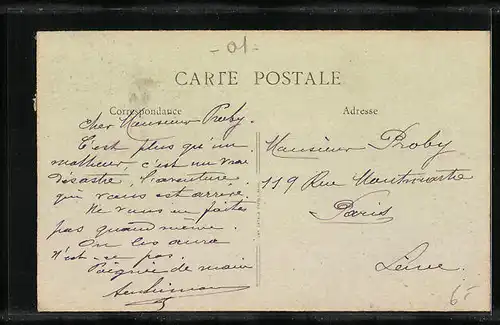 -01-
CARTE POSTALE
Correspondance
Adresse
Cher Monsieur Proby.
C'est plus qu'un
malheur - c'est un vrai
désastre, l'aventure
qui vous est arrivé.
Ne vous en faites
pas quand même.
On les aura
n'est-ce pas.
Poignée de main
Monsieur Proby
119 Rue Montmartre
Paris
Seine
6-